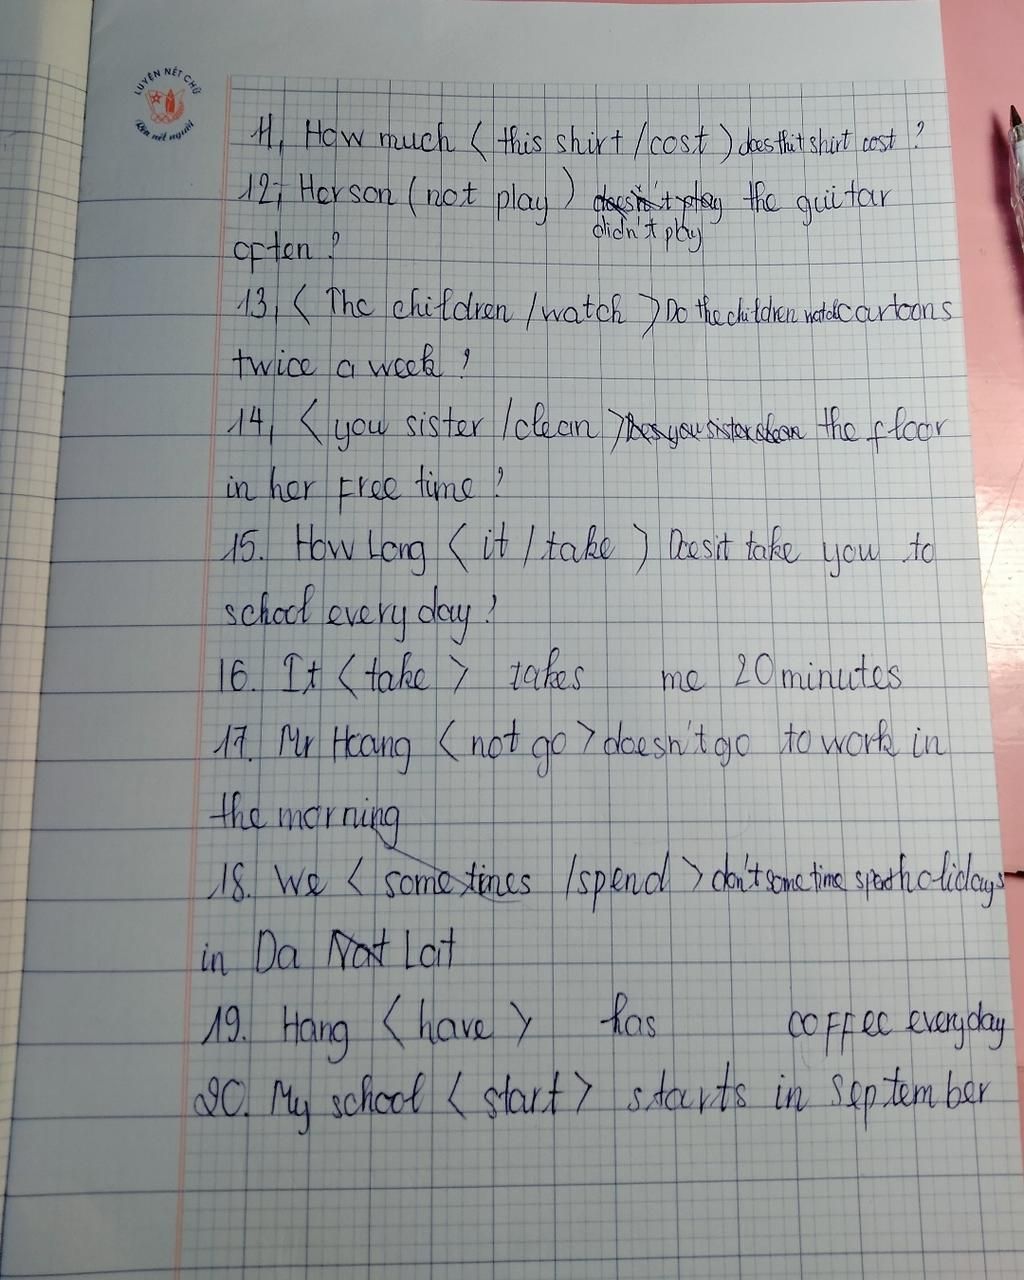 LUYỆN NÉT CHỮ
Rèn nết người
11, How much < this shirt / cost ) does thit shirt cost ?
12, Her son ( not play ) doesn't play the guitar
didn't play
often ?
13, < The children / watch > Do the children watch cartoons
twice a week ?
14, < you sister / clean > Does you sister clean the floor
in her free time ?
15. How Long < it / take ) Does it take you to
school every day ?
16. It < take > takes me 20 minutes
17. Mr Hoang < not go > doesn't go to work in
the morning
18. We < sometimes / spend > don't some time holidays
in Da Nat Lat
19. Hang < have > has coffee everyday
20. My school < start > starts in September